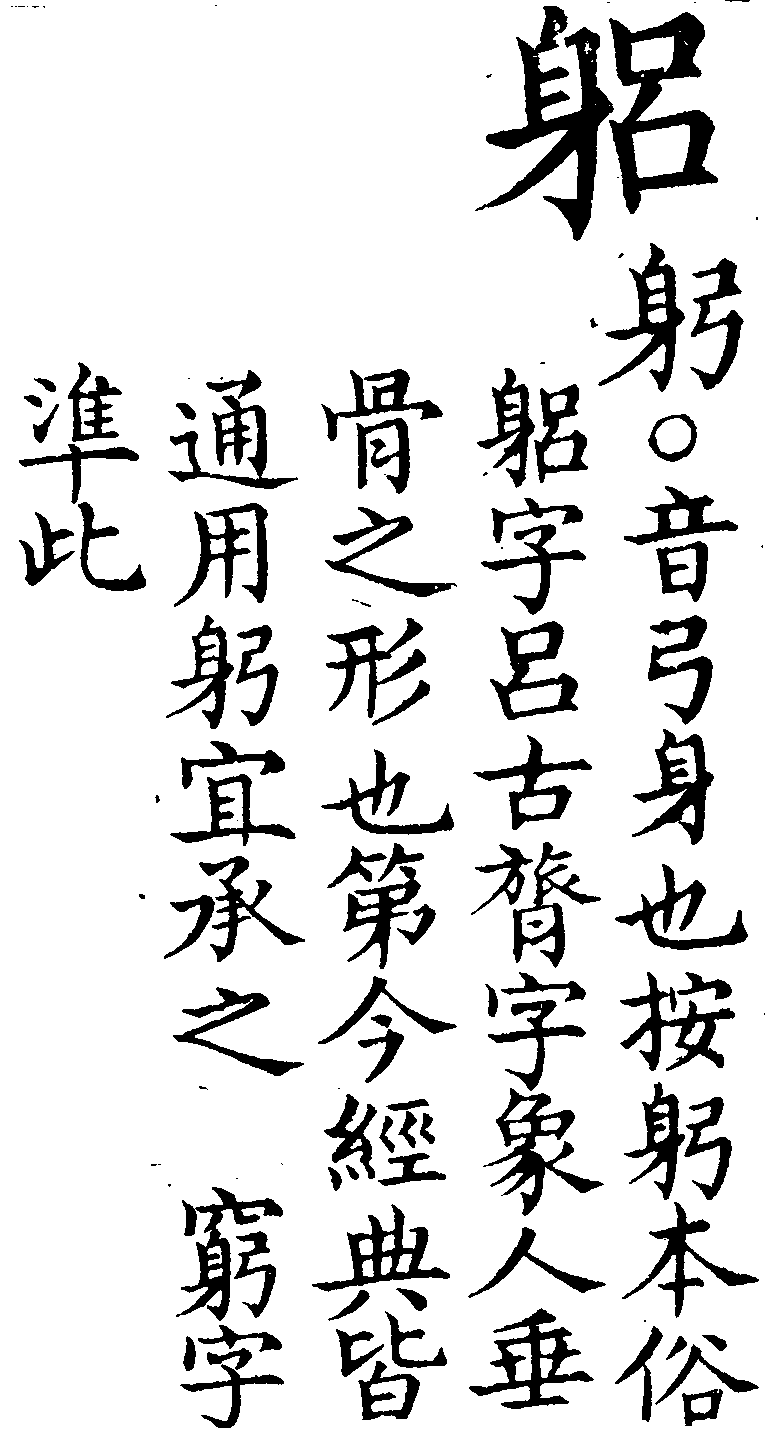 躳
躬○音弓身也按躬本俗
躳字呂古膂字象人垂
骨之形也第今經典皆
通用躬宜承之 窮字
準此